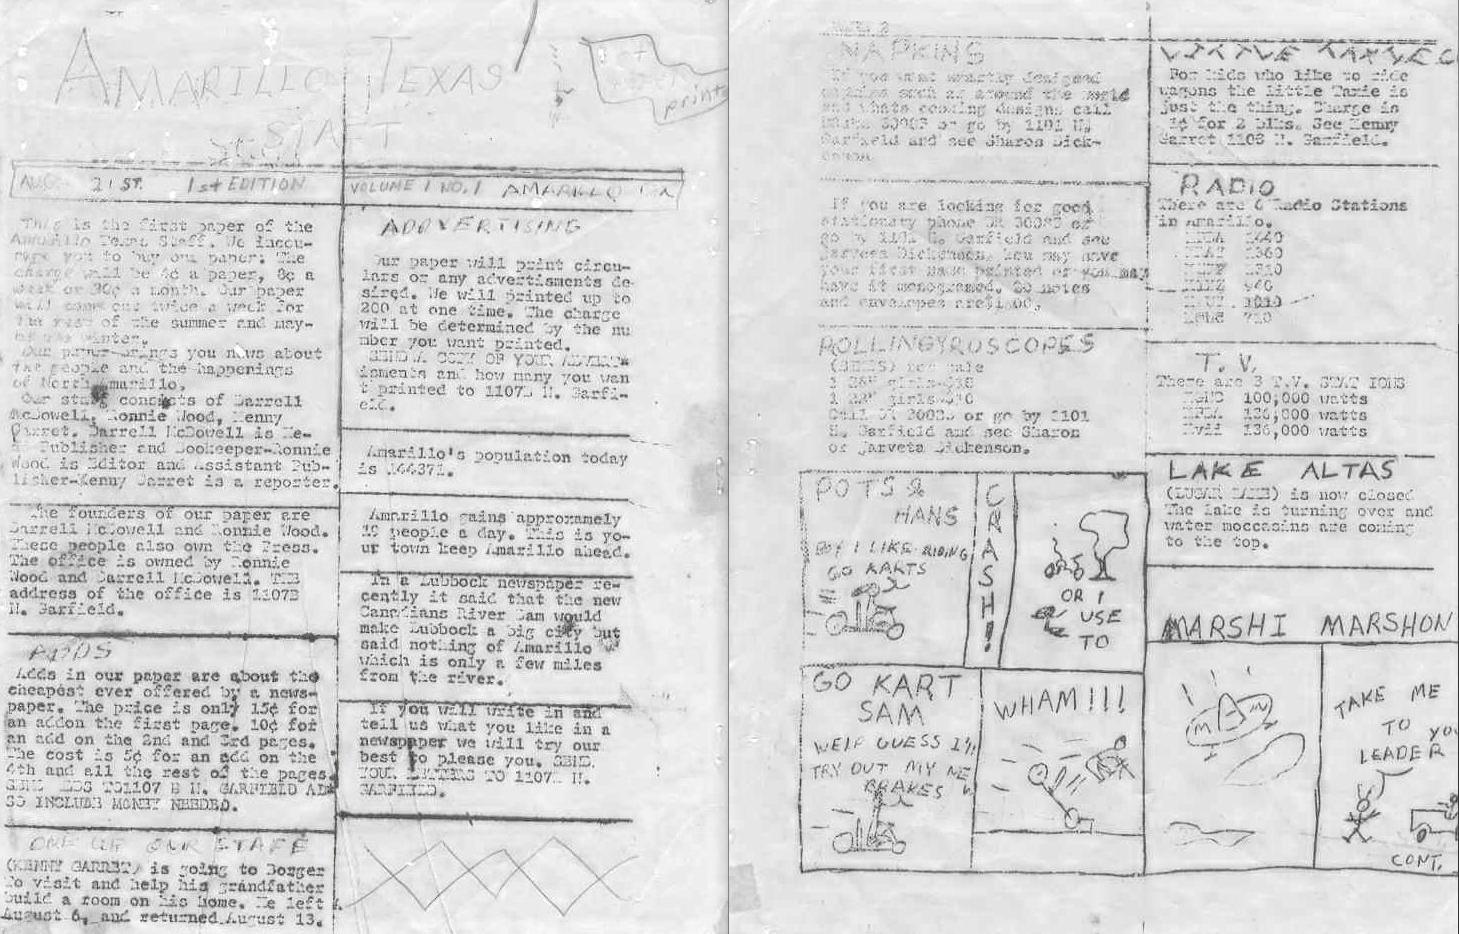 AMARILLO TEXAS
STAFF
AUG. 21ST. 1st EDITION
VOLUME 1 NO. 1 AMARILLO
This is the first paper of the
Amarillo Texas Staff. We incou-
rage you to buy our paper. The
charge will be 4¢ a paper, 8¢ a
week or 30¢ a month. Our paper
will come out twice a week for
the rest of the summer and may-
be the winter.
Our paper brings you news about
the people and the happenings
of North Amarillo.
Our staff consists of Darrell
McDowell, Ronnie Wood, Kenny
Garret. Darrell McDowell is He-
Publisher and Bookeeper-Ronnie
Wood is Editor and Assistant Pub-
lisher-Kenny Garret is a reporter.
The founders of our paper are
Darrell McDowell and Ronnie Wood.
These people also own the Press.
The office is owned by Ronnie
Wood and Darrell McDowell. THE
address of the office is 1107B
N. Garfield.
ADDS
Adds in our paper are about the
cheapest ever offered by a news-
paper. The price is only 15¢ for
an addon the first page. 10¢ for
an add on the 2nd and 3rd pages.
The cost is 5¢ for an add on the
4th and all the rest of the pages.
SEND ADDS TO1107 B N. GARFIELD AL*
SO INCLUDE MONEY NEEDED.
ONE OF OUR STAFF
(KENNY GARRET) is going to Borger
To visit and help his grandfather
build a room on his home. He left
August 6, and returned August 13.
ADDVERTISING
Our paper will print circu-
lars or any advertisments de-
sired. We will printed up to
200 at one time. The charge
will be determined by the nu
mber you want printed.
SEND A COPY OF YOUR ADVERT*
isments and how many you wan
t printed to 1107B N. Garfi-
eld.
Amarillo's population today
is 144371.
Amarillo gains approxamely
19 people a day. This is yo-
ur town keep Amarillo ahead.
In a Lubbock newspaper re-
cently it said that the new
Canadians River Dam would
make Lubbock a big city but
said nothing of Amarillo
which is only a few miles
from the river.
If you will write in and
tell us what you like in a
newspaper we will try our
best to please you. SEND
YOUR LETTERS TO 1107B N.
GARFIELD.
NAPKINS
If you want exactly designed
napkins such as around the world
and whats cooking designs call
or go by 1101 N.
Garfield and see Sharon Dick-
enson
If you are looking for good
stationary phone DR or
go by 1101 N. Garfield and see
Jarveta Dickenson. You may have
your first name printed or you may
have it monogramed. notes
and envelopes
ROLLINGYROSCOPES
(BIKES) for sale
1 girls-
1 girls-
Call DR or go by 1101
N. Garfield and see Sharon
or Jarveta Dickenson.
LITTLE
For kids who like to ride
wagons the little Taxie is
just the thing. Charge is
1¢ for 2 blks. See Kenny
Garret 1108 N. Garfield.
RADIO
There are 6 Radio Stations
in Amarillo.
1440
1360
1310
940
1010
710
T.V.
There are 3 T.V. STATIONS
KGNC 100,000 watts
KFDA watts
Kvii watts
LAKE ALTAS
is now closed
The lake is turning over and
water moccasins are coming
to the top.
POTS &
HANS
BOY I LIKE RIDING
GO KARTS
CRASH!
OR I
USE
TO
GO KART
SAM
WELP GUESS I'll
TRY OUT MY NEW
BRAKES
WHAM!!!
MARSHI MARSHON
TAKE ME
TO YOU
LEADER
CONT.